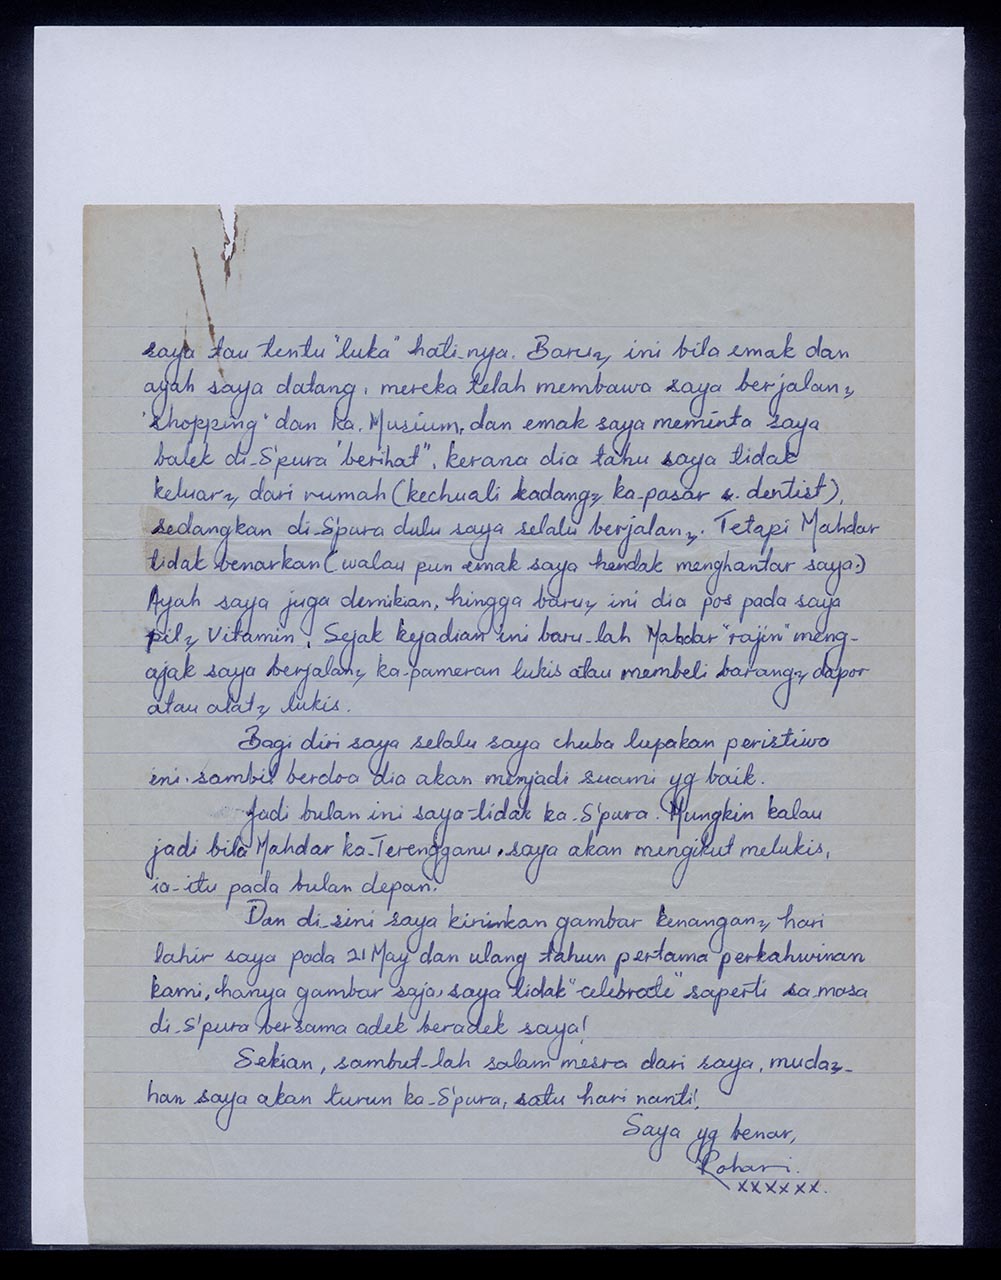 saya tau tentu "luka" hati-nya. Baru2 ini bila emak dan
ayah saya datang, mereka telah membawa saya berjalan2
"shopping" dan ka. Musium, dan emak saya meminta saya
balek di-S'pura "berihat", kerana dia tahu saya tidak
keluar2 dari rumah (kechuali kadang2 ka-pasar & dentist),
sedangkan di-S'pura dulu saya selalu berjalan2. Tetapi Mahdar
tidak benarkan (walau pun emak saya hendak menghantar saya.)
Ayah saya juga demikian, hingga baru2 ini dia pos pada saya
pil2 Vitamin. Sejak kejadian ini baru-lah Mahdar "rajin" meng-
ajak saya berjalan2 ka-pameran lukis atau membeli barang2 dapor
atau alat2 lukis.
Bagi diri saya selalu saya chuba lupakan peristiwa
ini. sambil berdoa dia akan menjadi suami yg baik.
Jadi bulan ini saya-tidak ka-S'pura. Mungkin kalau
jadi bila Mahdar ka-Terengganu, saya akan mengikut melukis,
ia-itu pada bulan depan.
Dan di-sini saya kirimkan gambar kenangan2 hari
lahir saya pada 21 May dan ulang tahun pertama perkahwinan
kami, hanya gambar saja, saya tidak "celebrate" saperti sa-masa
di-S'pura bersama adek beradek saya!
Sekian, sambut-lah salam mesra dari saya, muda2-
han saya akan turun ka-S'pura, satu hari nanti!
Saya yg benar,
Rohani.
xxxxxx.